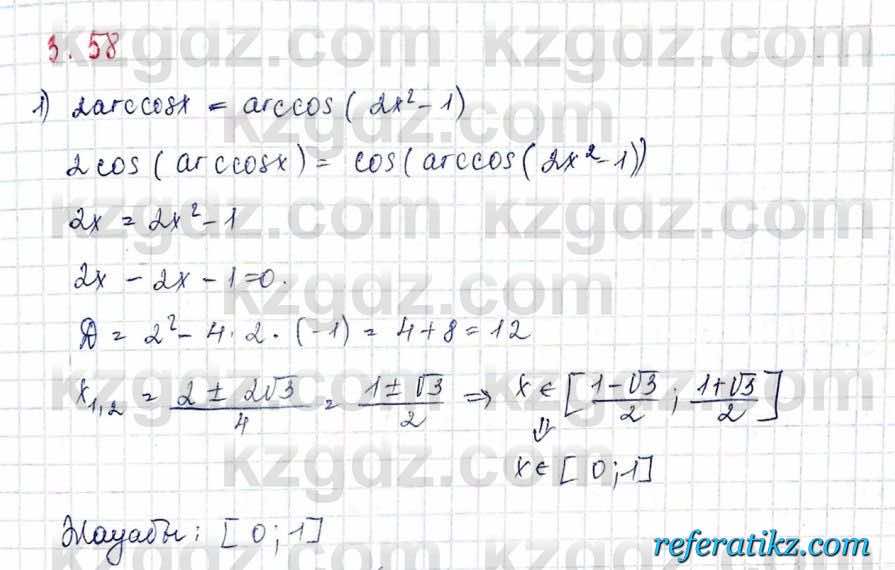 3.58
1) 2arccosx = arccos(2x²-1)
2cos(arccosx) = cos(arccos(2x²-1))
2x = 2x²-1
2x - 2x - 1=0.
D = 2² - 4·2·(-1) = 4+8=12
x₁,₂ = (2 ± 2√3)/4 = (1 ± √3)/2 ⇒ x ∈ [(1-√3)/2 ; (1+√3)/2]
⇓
x ∈ [0;1]
Жауабы: [0;1]
kzgdz.com kzgdz.com
kzgdz.com
kzgdz.com kzgdz.com
kzgdz.com
kzgdz.com kzgdz.com
kzgdz.com
kzgdz.com kzgdz.com
referatikz.com